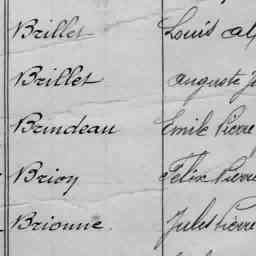 Brillet Louis Al
Brillet Auguste J
Brindeau Emile Pierre
Briory Félix Pierre
Brionne Jules Pierre